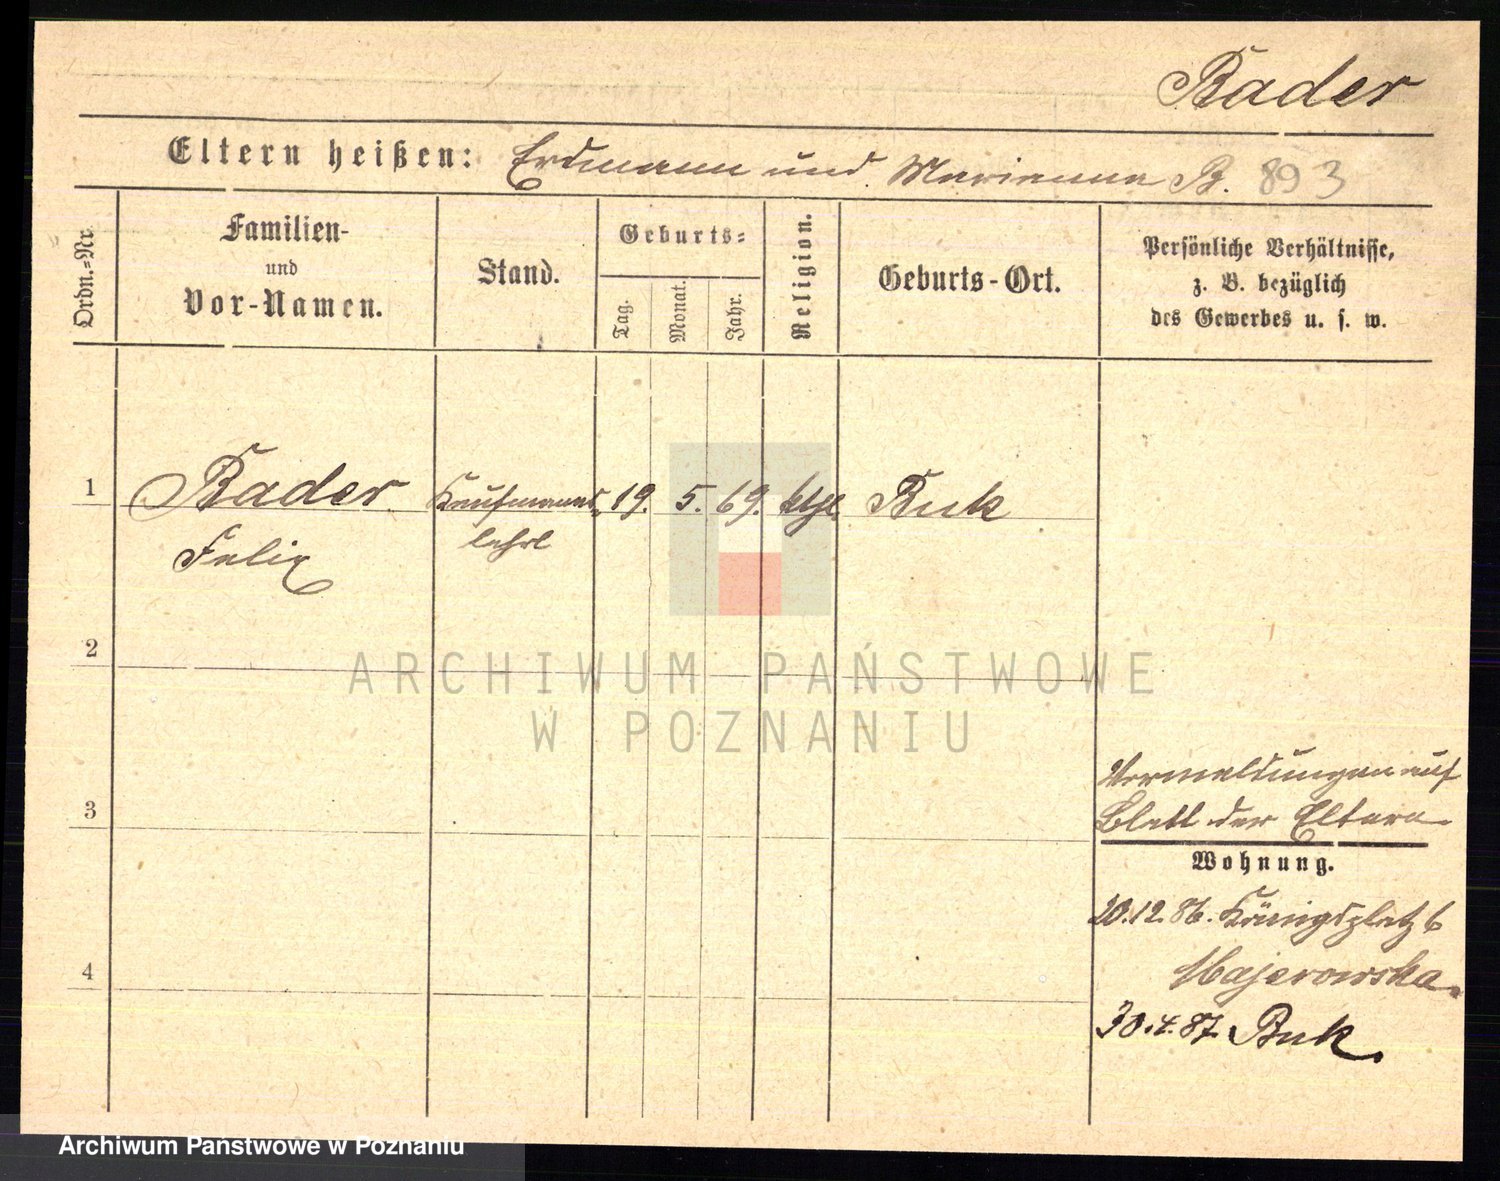 Bader
Eltern heißen: Erdmann und Marianna B. 893
Ordn.=Nr.
Familien-
und
Vor-Namen.
Stand.
Geburts=
Tag.
Monat.
Jahr.
Religion.
Geburts-Ort.
Persönliche Verhältnisse,
z. B. bezüglich
des Gewerbes u. s. w.
1 Bader Kaufmanns 19. 5. 69. kthl. Buk
Felix lehrl
2
ARCHIWUM PAŃSTWOWE
W POZNANIU
3
Vermeldungen auf
Blatt der Eltern
Wohnung.
20.12.86. Königsplatz 6
Majerowska.
4
30.4.87. Buk.
Archiwum Państwowe w Poznaniu